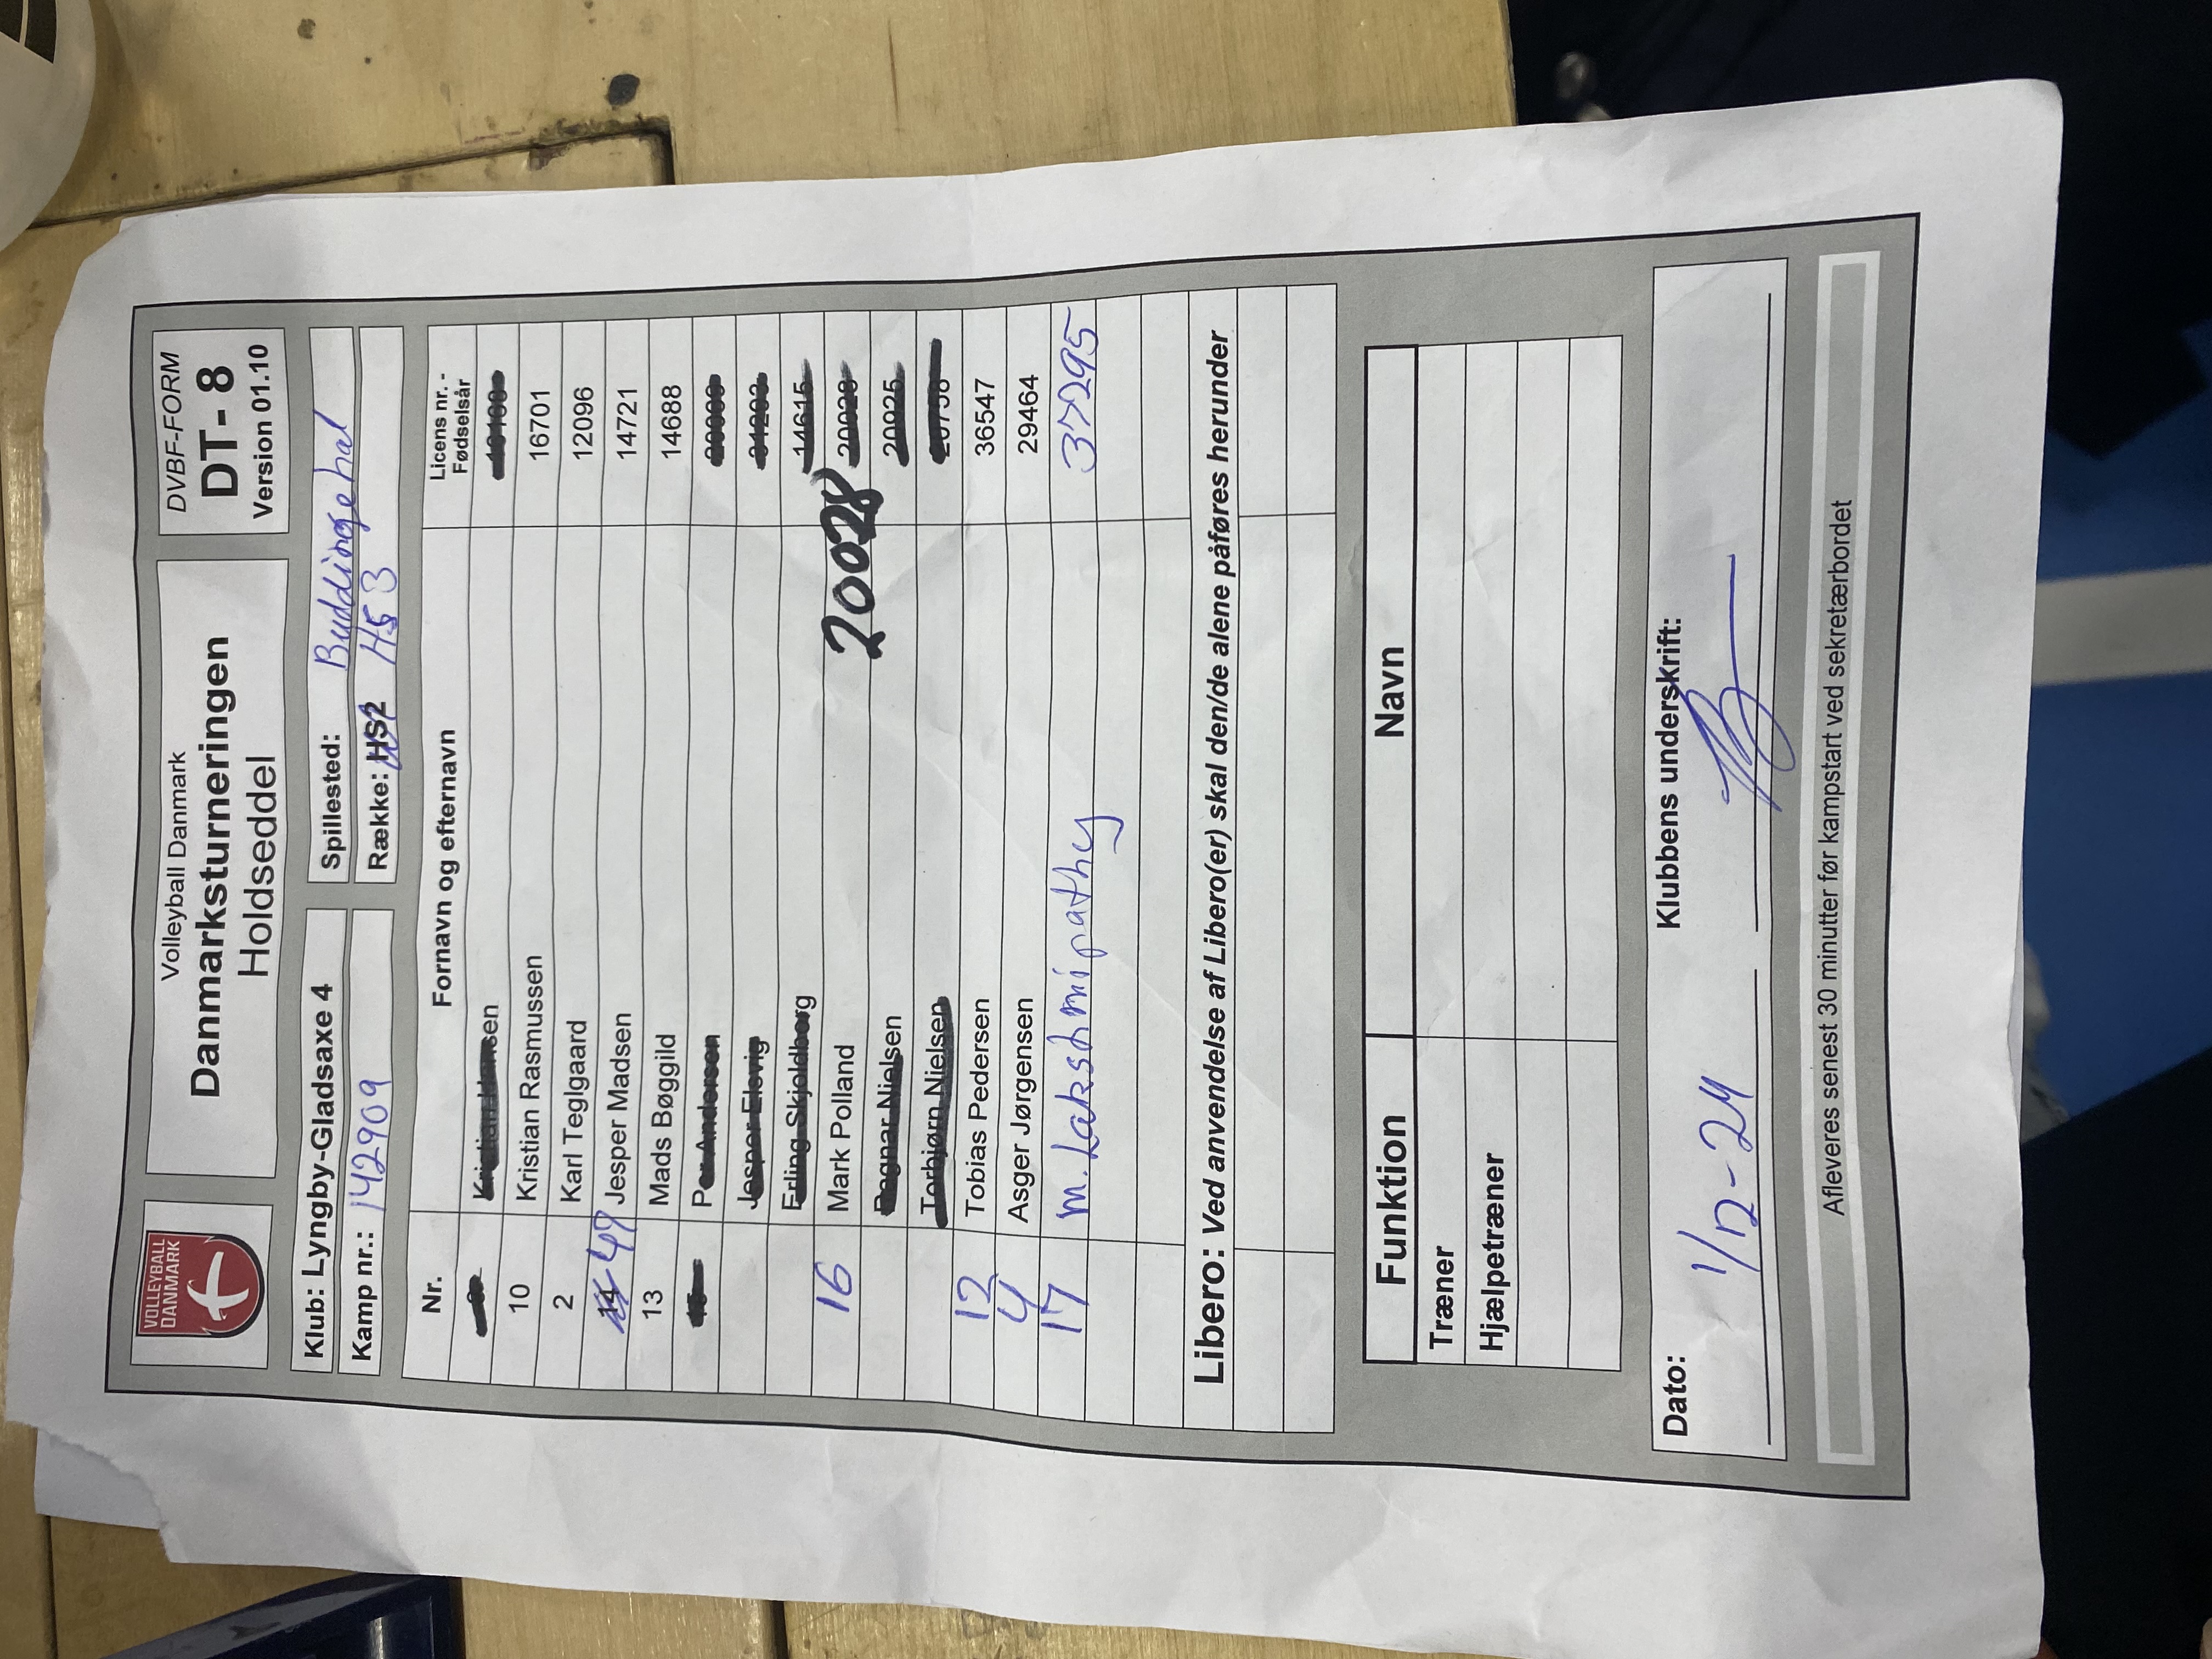 VOLLEYBALL
DANMARK
Volleyball Danmark
Danmarksturneringen
Holdseddel
DVBF-FORM
DT- 8
Version 01.10
Klub: Lyngby-Gladsaxe 4
Spillested: Buddingehal
Kamp nr.: 142909
Række: HS2 HS3
Nr. Fornavn og efternavn Licens nr. - Fødselsår
10 Kristian Rasmussen 16701
2 Karl Teglgaard 12096
14 49 Jesper Madsen 14721
13 Mads Bøggild 14688
Per Andersen
Jesper Elsvig
Erling Skjoldborg 14615
16 Mark Polland 20028 20028
Ragnar Nielsen 20025
Torbjørn Nielsen
12 Tobias Pedersen 36547
4 Asger Jørgensen 29464
17 M. Lakshmipathy 37295
Libero: Ved anvendelse af Libero(er) skal den/de alene påføres herunder
Funktion Navn
Træner
Hjælpetræner
Dato: Klubbens underskrift:
1/12-24
Afleveres senest 30 minutter før kampstart ved sekretærbordet